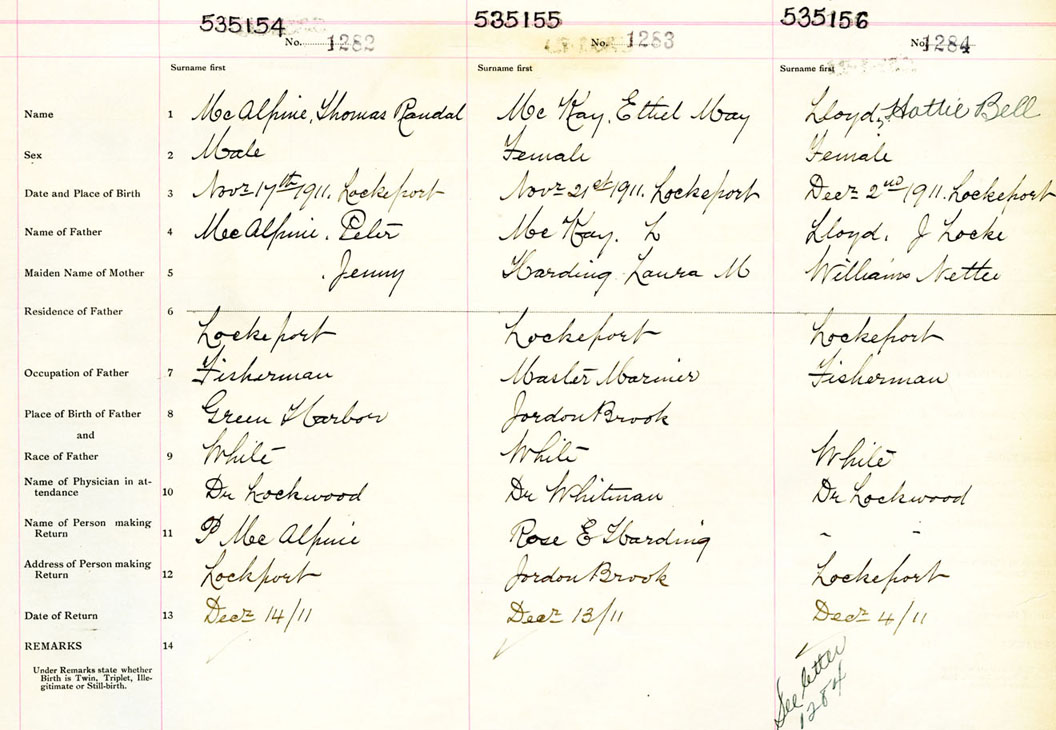 535154 535155 535156
No. 1282 No. 1283 No. 1284
Surname first Surname first Surname first
Name 1 McAlpine, Thomas Randal Mc Kay, Ethel May Lloyd, Hattie Bell
Sex 2 Male Female Female
Date and Place of Birth 3 Novr 17th 1911. Lockeport Novr 21st 1911. Lockeport Decr 2nd 1911. Lockeport
Name of Father 4 MccAlpine. Peter Mc Kay. L Lloyd. J Locke
Maiden Name of Mother 5 . Jenny Harding Laura M Williams Nettie
Residence of Father 6
Lockeport Lockeport Lockeport
Occupation of Father 7 Fisherman Master Mariner Fisherman
Place of Birth of Father 8 Green Harbor Jordon Brook
and
Race of Father 9 White White White
Name of Physician in at-
tendance 10 Dr Lockwood Dr Whitman Dr Lockwood
Name of Person making
Return 11 P Mcc Alpine Rose E Harding " "
Address of Person making
Return 12 Lockport Jordon Brook Lockeport
Date of Return 13 Decr 14/11 Decr 13/11 Decr 4/11
REMARKS 14
Under Remarks state whether
Birth is Twin, Triplet, Ille-
gitimate or Still-birth.
See letter
1284